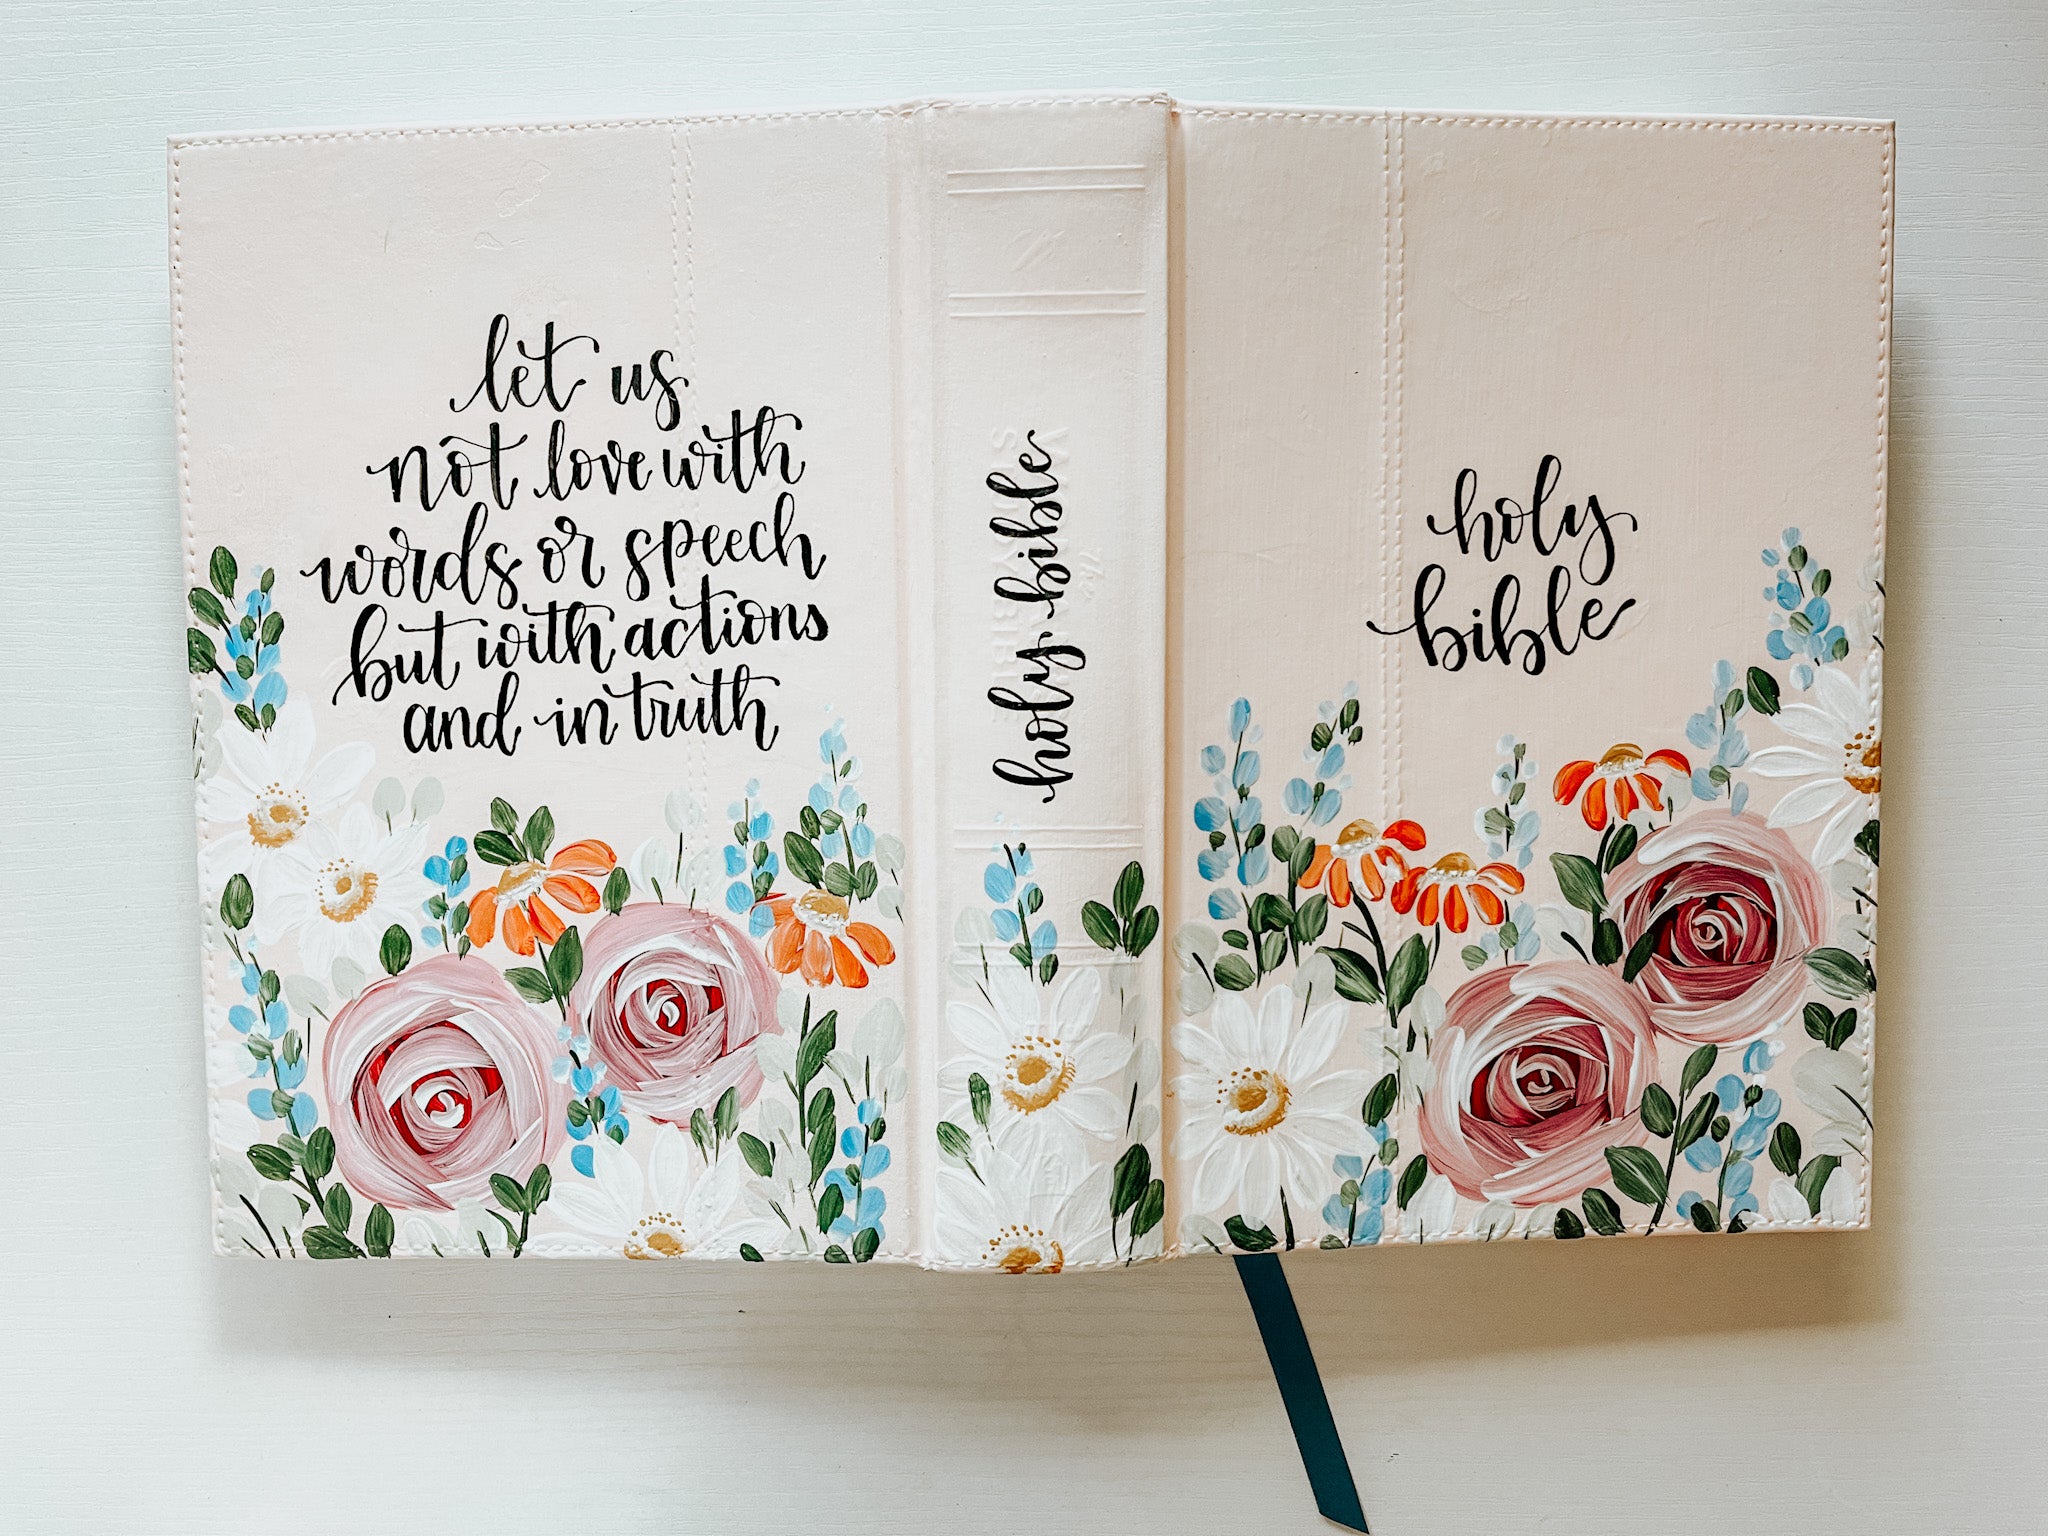 let us
not love with
words or speech
but with actions
and in truth
holy bible
holy
bible